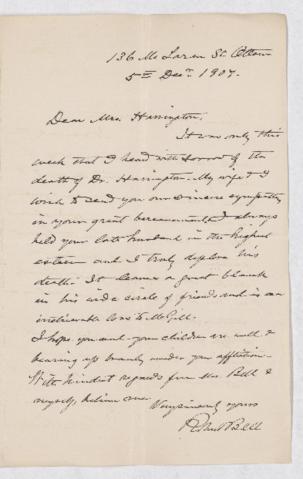 136 McLaren St. Ottawa
5th Decr. 1907.
Dear Mrs. Harrington;
It was only this
week that I heard with sorrow of the
death of Dr. Harrington. My wife & I
wish to send you our sincere sympathy
in your great bereavement. I always
held your late husband in the highest
esteem and I truly deplore his
death. It leaves a great blank
in his wide circle of friends and is an
irretrievable loss to McGill.
I hope you and your children are well &
bearing up bravely under your affliction.
With kindest regards from Mrs. Bell &
myself, believe me.
Very sincerely yours
Robert Bell